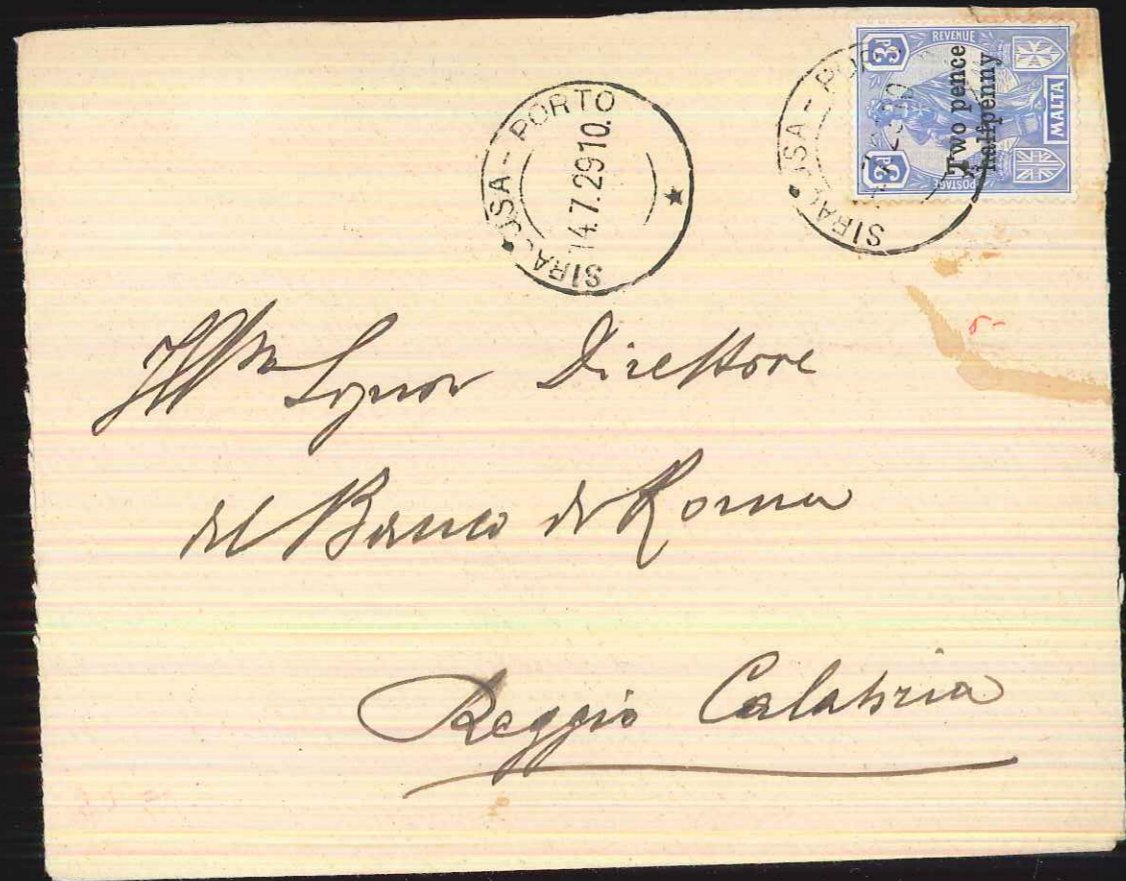 SIRACUSA - PORTO
14.7.29 10.
SIRACUSA - POR
3d
REVENUE
MALTA
POSTAGE
3d
Two pence
halfpenny
Illmo Signor Direttore
del Banco di Roma
Reggio Calabria